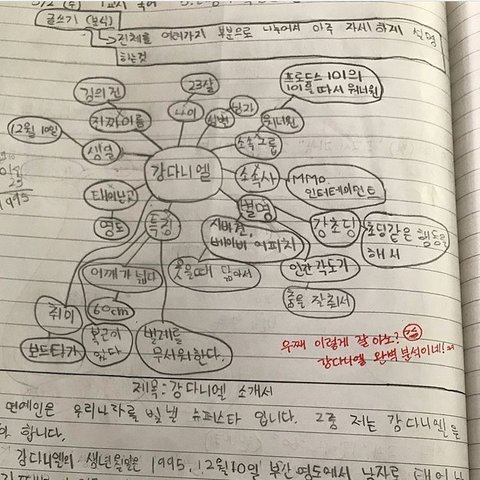 글쓰기 (분석)
전체를 여러가지 부분으로 나누어서 아주 자세하게 설명
하는것
김의건
23살
프로듀스 101의
101을 따서 워너원
진짜이름
나이
성별
남자
워너원
12월 10일
생일
강다니엘
소속그룹
소속사
MMO
엔터테인먼트
1995
태어난곳
별명
특징
영도
시바견,
베이비 어피치
강초딩
초딩같은 행동을
해서
어깨가 넓다
웃을때 닮아서
인간각도기
취미
60cm
춤을 잘춰서
보드타기
복근이
있다
벌레를
무서워한다.
우째 이렇게 잘 아노?
강다니엘 완벽분석이네!
제목: 강다니엘 소개서
연예인은 우리나라를 빛낼 슈퍼스타 입니다. 그중 저는 강다니엘을
합니다.
강다니엘의 생년월일은 1995.12월10일 부산영도에서 남자로 태어